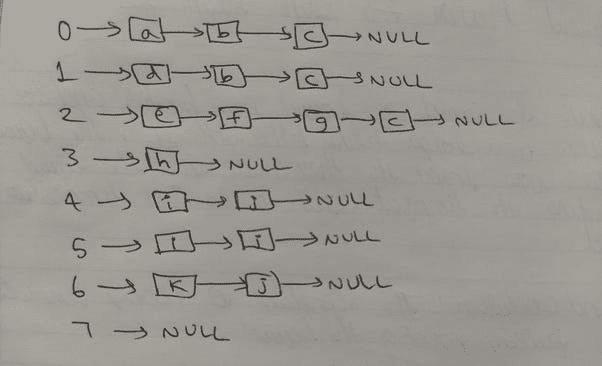 0 → a → b → c → NULL
1 → d → b → c → NULL
2 → e → f → g → c → NULL
3 → h → NULL
4 → i → j → NULL
5 → → → NULL
6 → K → j → NULL
7 → NULL